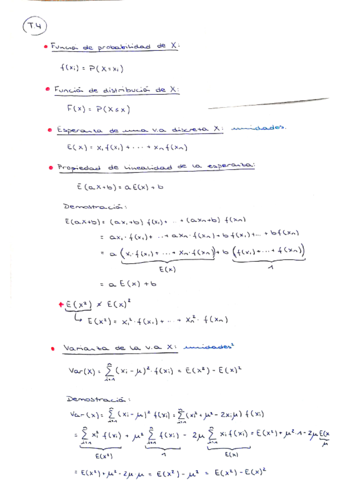 T.4
• Función de probabilidad de X:
f(xi) = P(X=xi)
• Función de distribución de X:
F(x) = P(X≤x)
• Esperanza de una v.a discreta X: unidades.
E(X) = x₁f(x₁) + ··· + xnf(xn)
• Propiedad de linealidad de la esperanza:
E(aX+b) = aE(X) + b
Demostración:
E(aX+b) = (ax₁+b) f(x₁) + ... + (axn+b) f(xn)
= ax₁·f(x₁) + ... + axn·f(xn) + b f(x₁) + ... + bf(xn)
= a (x₁·f(x₁) + ... + xn·f(xn)) + b (f(x₁) + ... + f(xn))
E(X) 1
= a E(X) + b
* E(X²) ≠ E(X)²
↳ E(X²) = x₁²·f(x₁) + ... + xn²·f(xn)
• Varianza de la v.a X: unidades²
Var(X) = Σ (xi-μ)²·f(xi) = E(X²) - E(X)²
Demostración:
Var(X) = Σ (xi-μ)² f(xi) = Σ (xi²+μ²-2xiμ) f(xi)
= Σ xi² f(xi) + μ² Σ f(xi) - 2μ Σ xi f(xi) = E(X²) + μ²·1 - 2μE(X
E(X²) 1 E(X) μ
= E(X²) + μ² - 2μ·μ = E(X²) - μ² = E(X²) - E(X)²